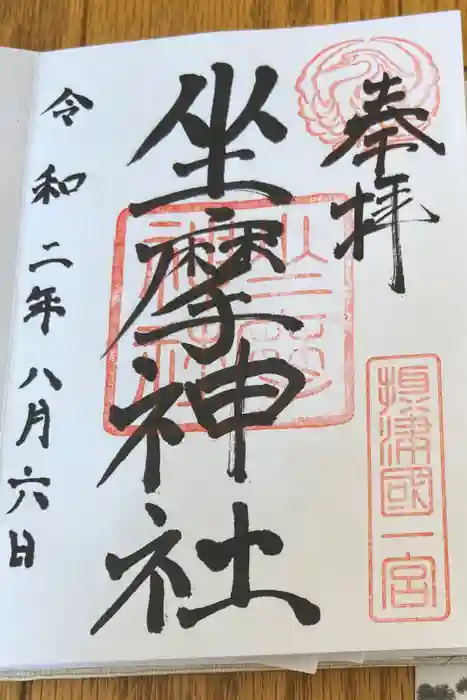 奉拝
摂津國一宮
坐摩神社
坐摩神社
令和二年八月六日